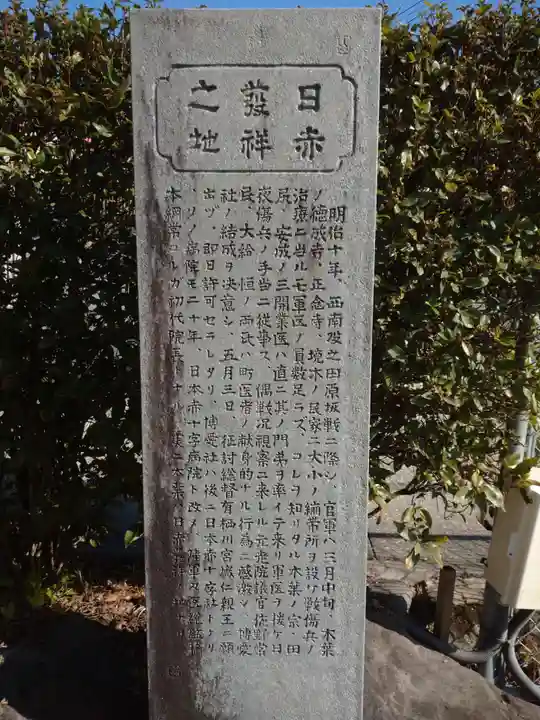 日赤
發祥
之地
明治十年、西南役之田原坂戦ニ際シ、官軍ハ三月中旬、木葉
ノ徳成寺、正念寺、境木ノ民家ニ大小ノ繃帯所ヲ設ケ戦傷兵ノ
治療ニ当ルモ軍医ノ員数足ラズ、コレヲ知リタル木葉ノ宗、田
尻、安成ノ三開業医ハ直ニ其ノ門弟ヲ率イテ来リ軍医ヲ援ケ日
夜傷兵ノ手当ニ従事ス、偶戦況視察ニ来レル元老院議官佐野常
民、大給 恒ノ両氏ハ町医者ノ献身的ナル行為ニ感激シ、博愛
社ノ結成ヲ決意シ、五月三日、征討総督有栖川宮熾仁親王ニ願
出ヅ、即日許可セラレタリ、博愛社ハ後ニ日本赤十字社トナリ
、ソノ病院モ二十年、日本赤十字病院ト改メ、陸軍軍医総監橋
本綱常コレガ初代院長